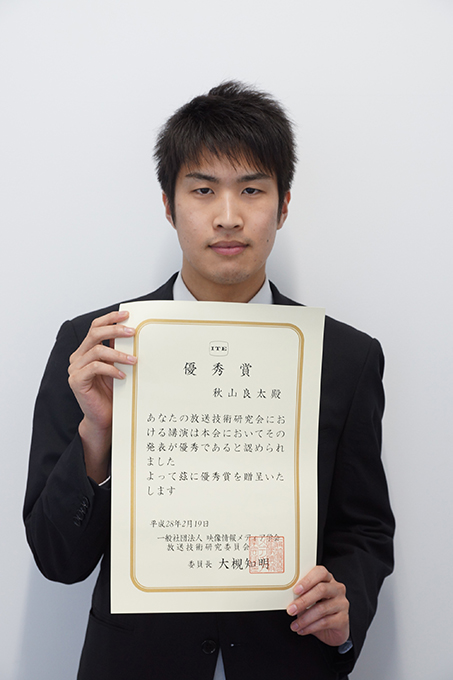 ITE
優秀賞
秋山良太殿
あなたの放送技術研究会にお
ける講演は本会においてその
発表が優秀であると認められ
ました
よって茲に優秀賞を贈呈いた
します
平成28年2月19日
一般社団法人 映像情報メディア学会
放送技術研究委員会
委員長 大槻知明